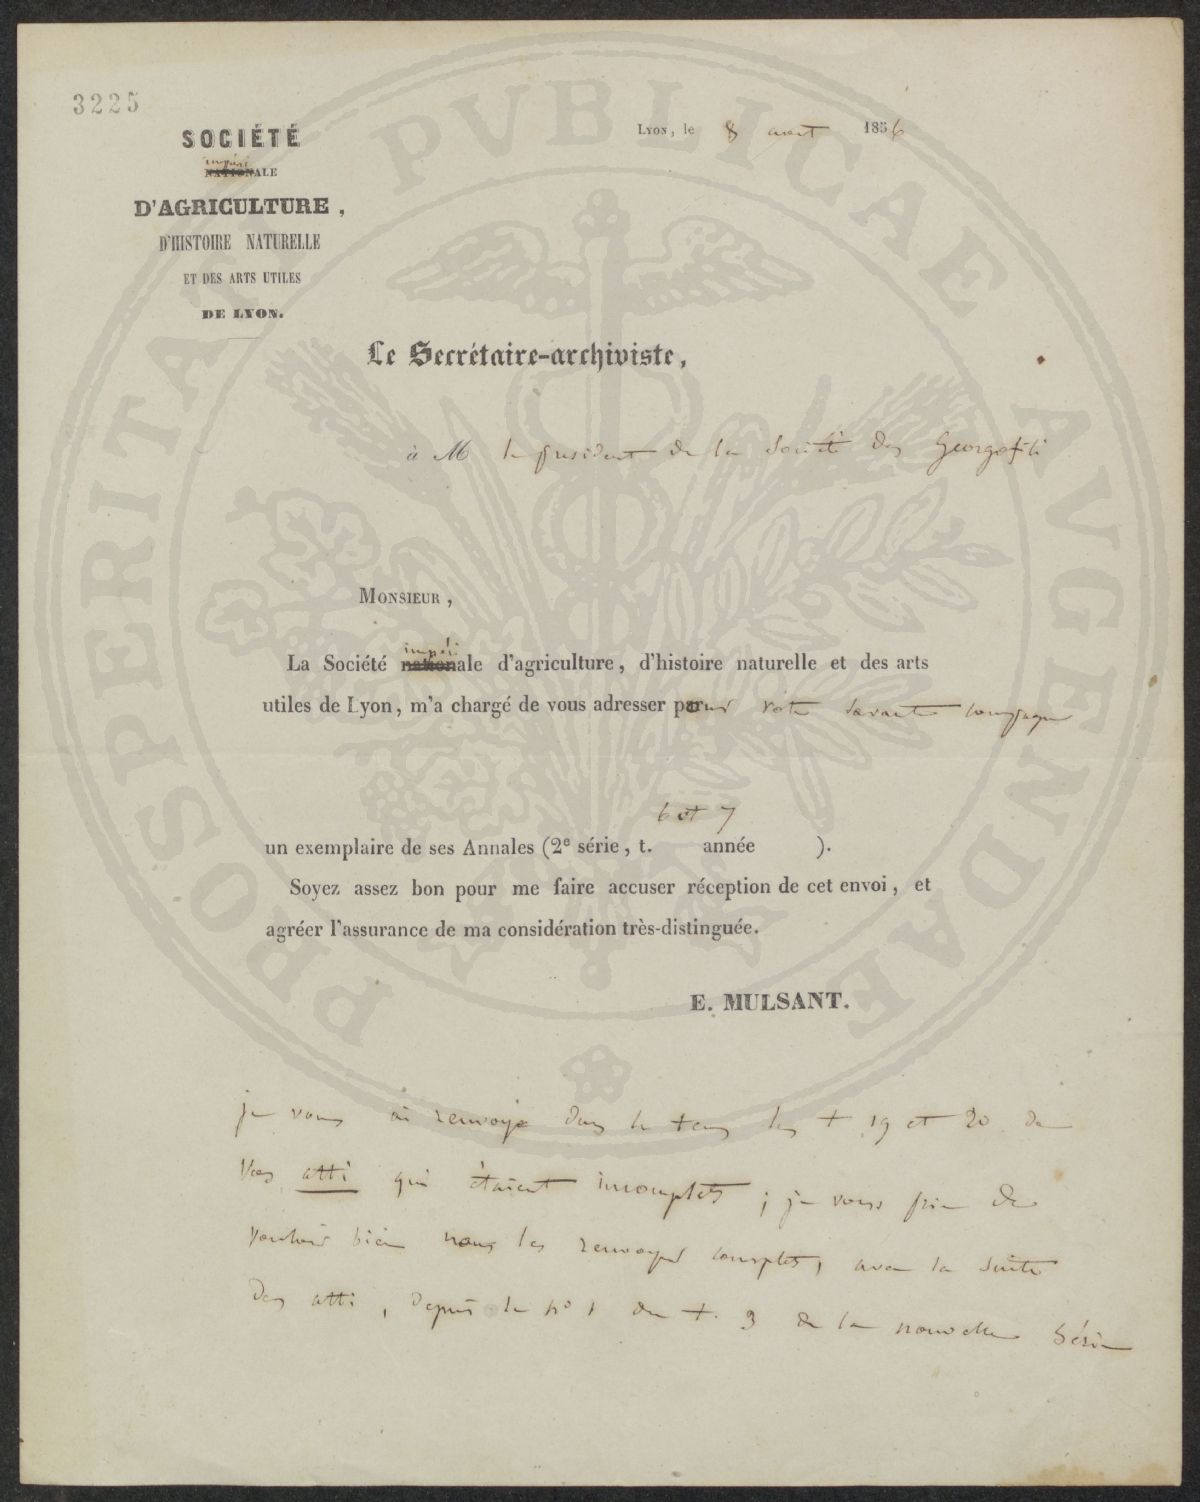 3225
SOCIÉTÉ
impéri
NATIONALE
D'AGRICULTURE,
D'HISTOIRE NATURELLE
ET DES ARTS UTILES
DE LYON.
Lyon, le 8 1856
Le Secrétaire-archiviste,
à M le president de la Société des Georgofili
Monsieur,
impéri
La Société nationale d'agriculture, d'histoire naturelle et des arts
utiles de Lyon, m'a chargé de vous adresser pour votre savante compagnie
6 et 7
un exemplaire de ses Annales (2e série, t. année ).
Soyez assez bon pour me faire accuser réception de cet envoi, et
agréer l'assurance de ma considération très-distinguée.
E. MULSANT.
je vous ai renvoyé dans le tems les t 19 et 20 de
Vos atti qui étaient incomplets; je vous prie de
vouloir bien nous les renvoyer complets, avec la suite
des atti, depuis le no 1 du t. 3 de la nouvelle Série
PROSPERITATI PVBLICAE AVGENDAE